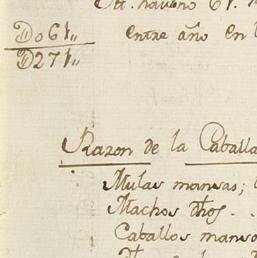 Do61,,
entre año en
D271,,
Razon de la Caballa
Mulas mansas;
Machos dhos.
Caballos manso